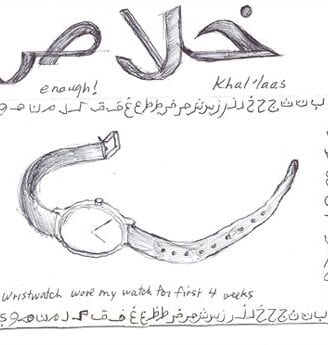 خلاص
enough! Khal'laas
ب ت ث ج ح خ د ذ ر ز س ش ص ض ط ظ ع غ ف ق ك ل م ن ه و
wristwatch wore my watch for first 4 weeks
ب ت ث ج ح خ د ذ ر ز س ش ص ض ط ظ ع غ ف ق ك ل م ن ه و ي